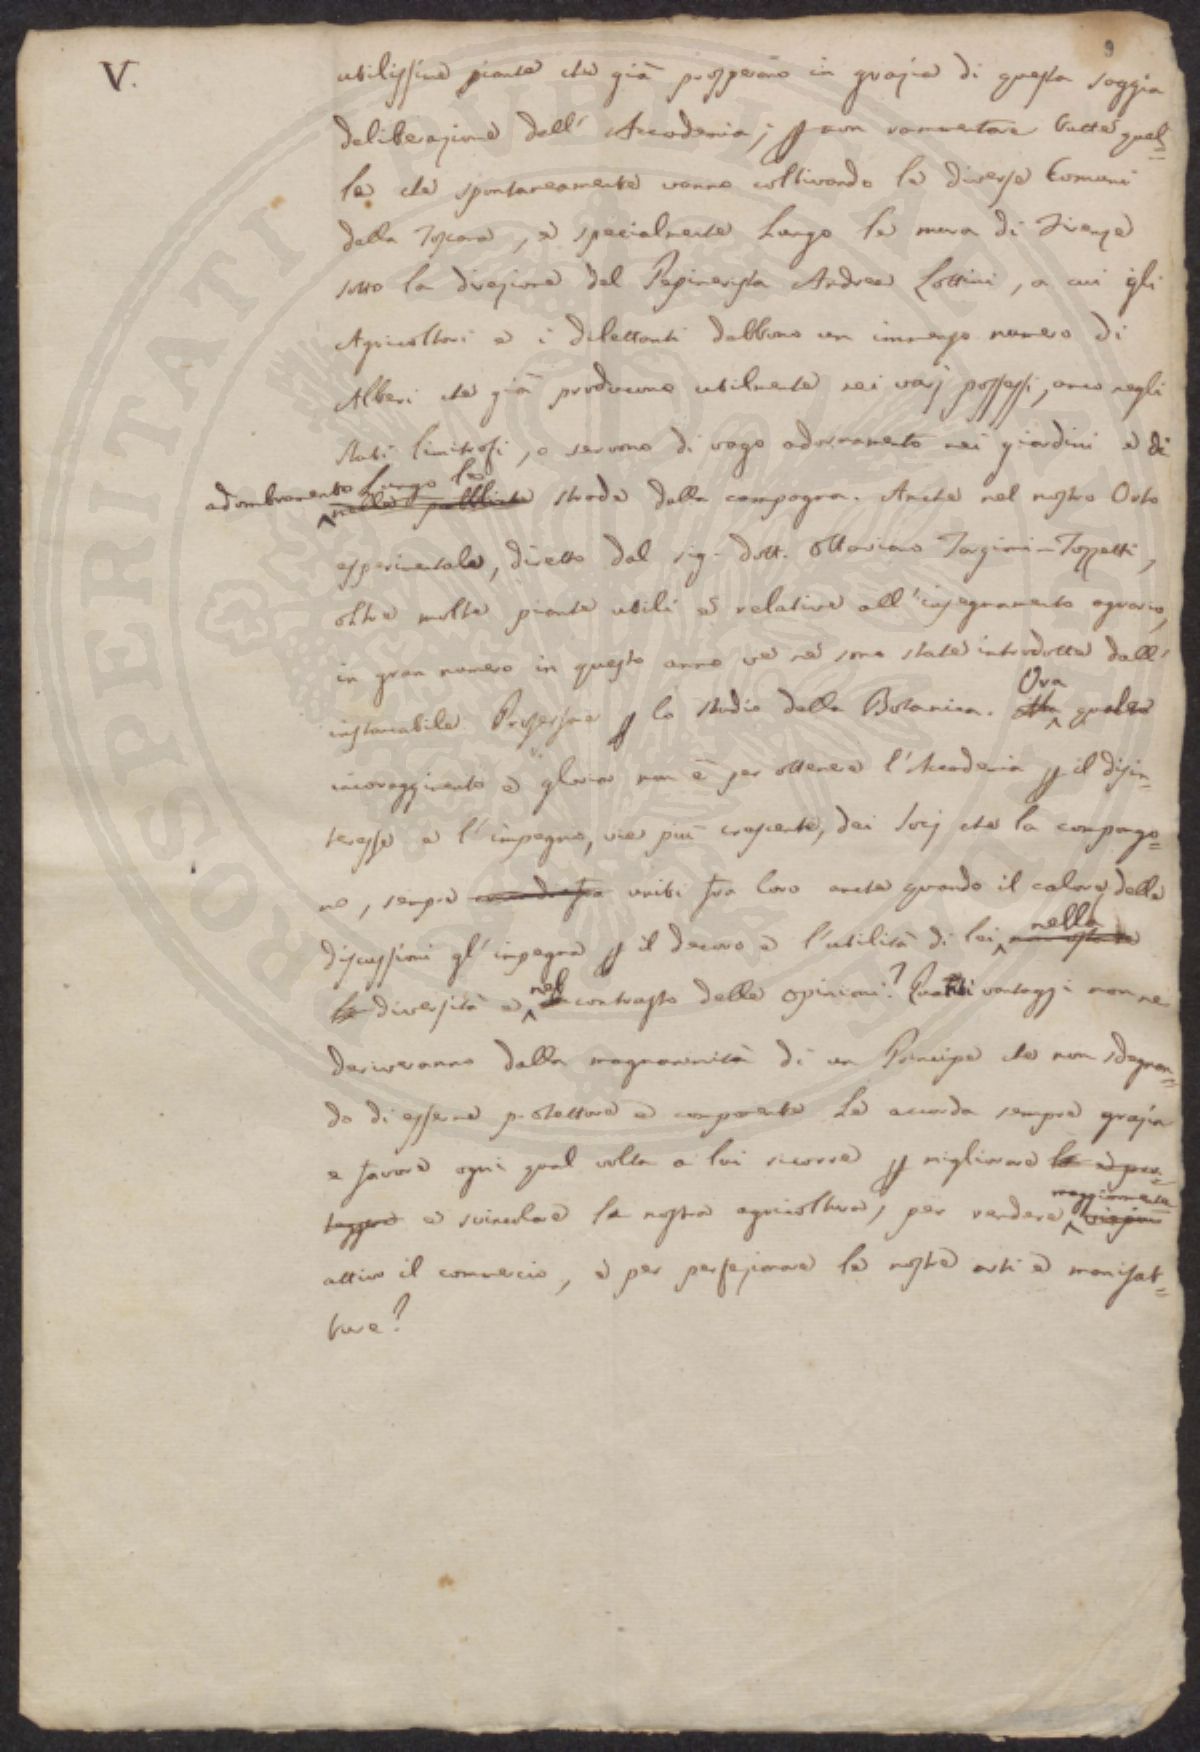 9
V.
utilissime piante che già prosperano in grazia di questa saggia
deliberazione dell' Accademia; p non rammentare tutte quel=
le che spontaneamente vanno coltivando le diverse Comuni
della Toscana, e specialmente Lungo le mura di Firenze
sotto la direzione del Pepinerista Andrea Lottini, a cui gli
Agricoltori e i dilettanti debbono un immenso numero di
Alberi che già producono utilmente nei varj possessi, anco negli
stati limitrofi, o servono di vago adornamento nei giardini e di
adombramento Lungo le
nelle pubbliche strade della campagna. Anche nel nostro Orto
esperimentale, diretto dal sig. dott. Ottaviano Targioni-Tozzetti,
oltre molte piante utili e relative all'insegnamento agrario,
in gran numero in questo anno ve ne sono state introdotte dall'
instancabile Professore p lo studio della Botanica. Ora quale
incoraggimento e gloria non è per ottenere l'Accademia p il disin=
teresse e l'impegno, vie più crescente, dei Socj che la compongo=
no, sempre uniti fra loro anche quando il calore delle
discussioni gl'impegna p il decoro e l'utilità di lei nella
la diversità e nel contrasto delle opinioni? Quanti vantaggi non ne
deriveranno dalla magnanimità di un Principe che non sdegnan=
do di esserne protettore e componente Le accorda sempre grazia
e favore ogni qual volta a lui ricorre p migliorare le e pro=
teggere e svincolare la nostra agricoltura, per rendere maggiormente
attivo il commercio, e per perfezionare le nostre arti e manifat=
ture?
PROSPERITATI PUBLICAE AUGENDAE